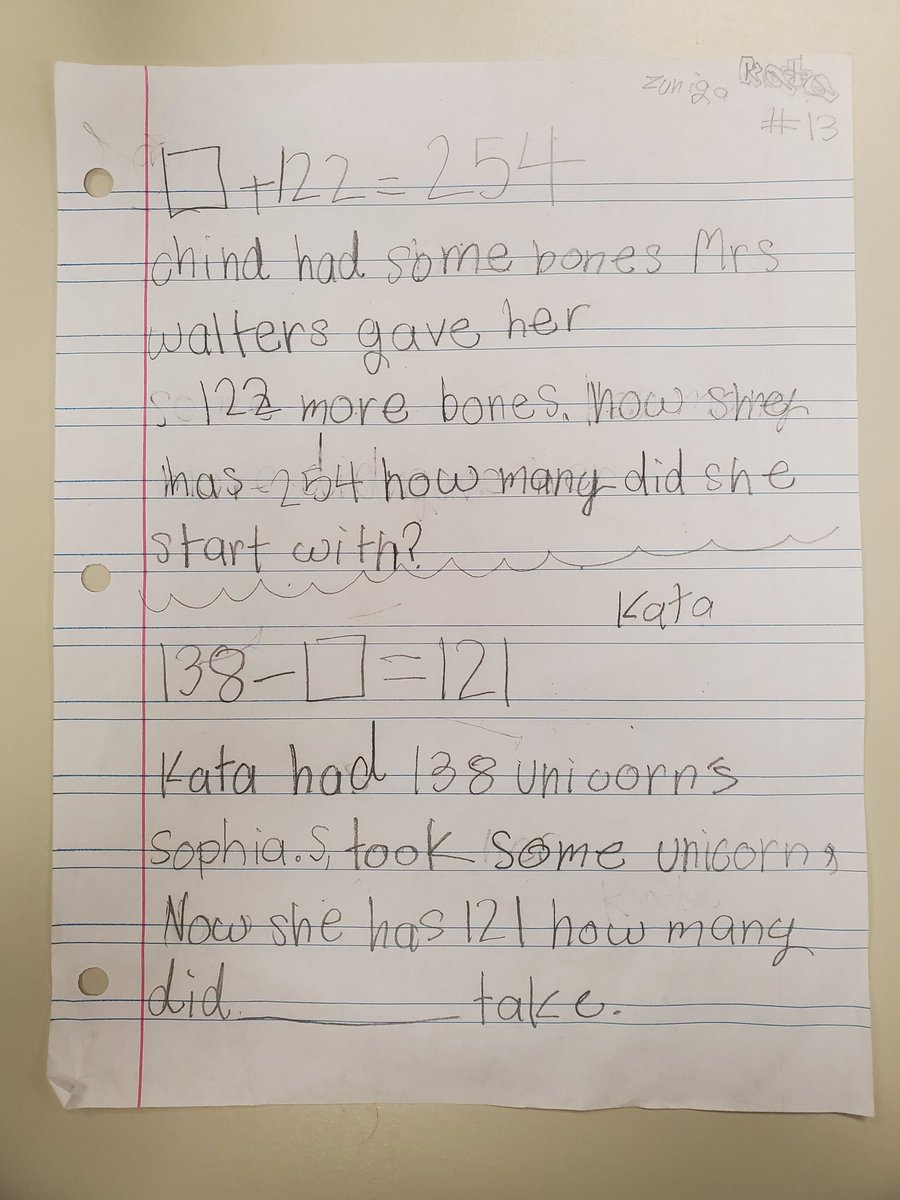 Zuniga Kata
#13
□ + 122 = 254
chind had some bones Mrs
walters gave her
122 more bones. now she
has 254 how many did she
start with?
Kata
138 - □ = 121
Kata had 138 unicorns
Sophia.S, took some unicorns
Now she has 121 how many
did ________ take.